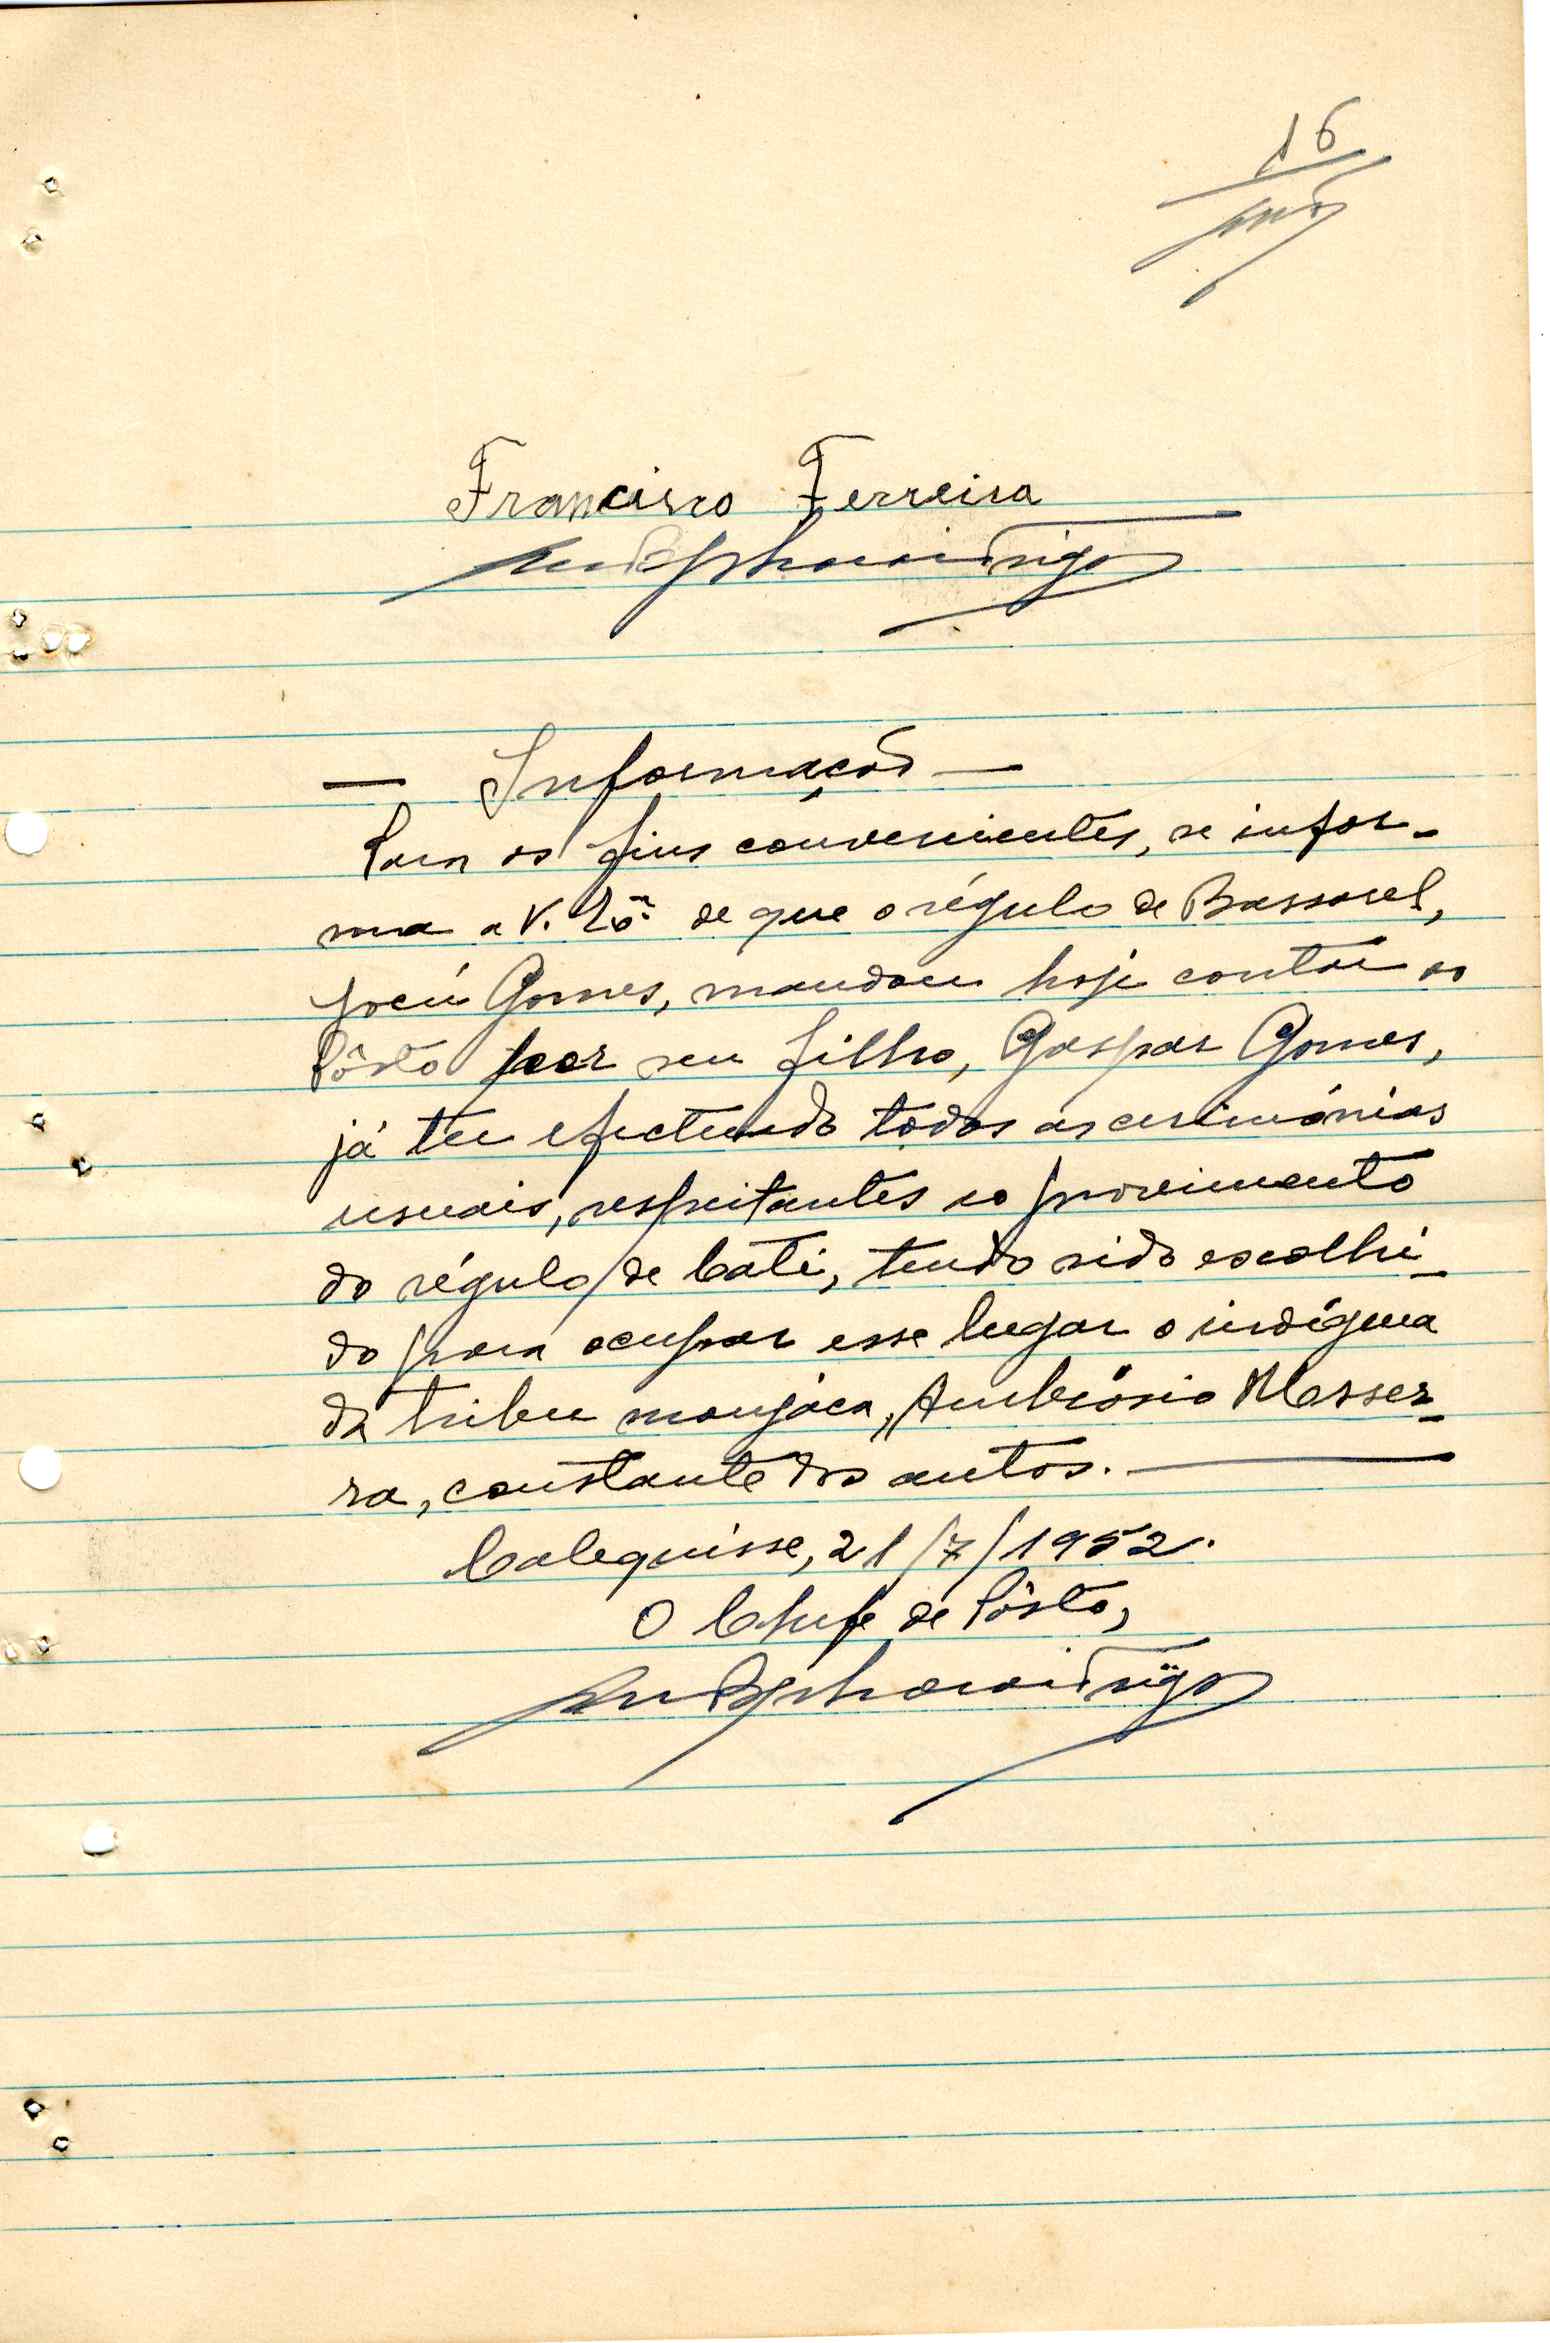 16
Francisco Ferreira
— Informação —
Para os fins convenientes, se infor-
ma a V. Exª. de que o régulo de Bassarel,
Gomes, mandou hoje contar ao
Pôsto por seu filho, Gaspar Gomes,
já ter efectuado todas as cerimónias
usuais, respeitantes ao provimento
do régulo de Cati, tendo sido escolhi-
do para ocupar esse lugar o indígena
da tribu manjaca, Ambrósio Masser-
ra, constante dos autos.
Calequisse, 21/7/1952.
O Chefe de Pôsto,